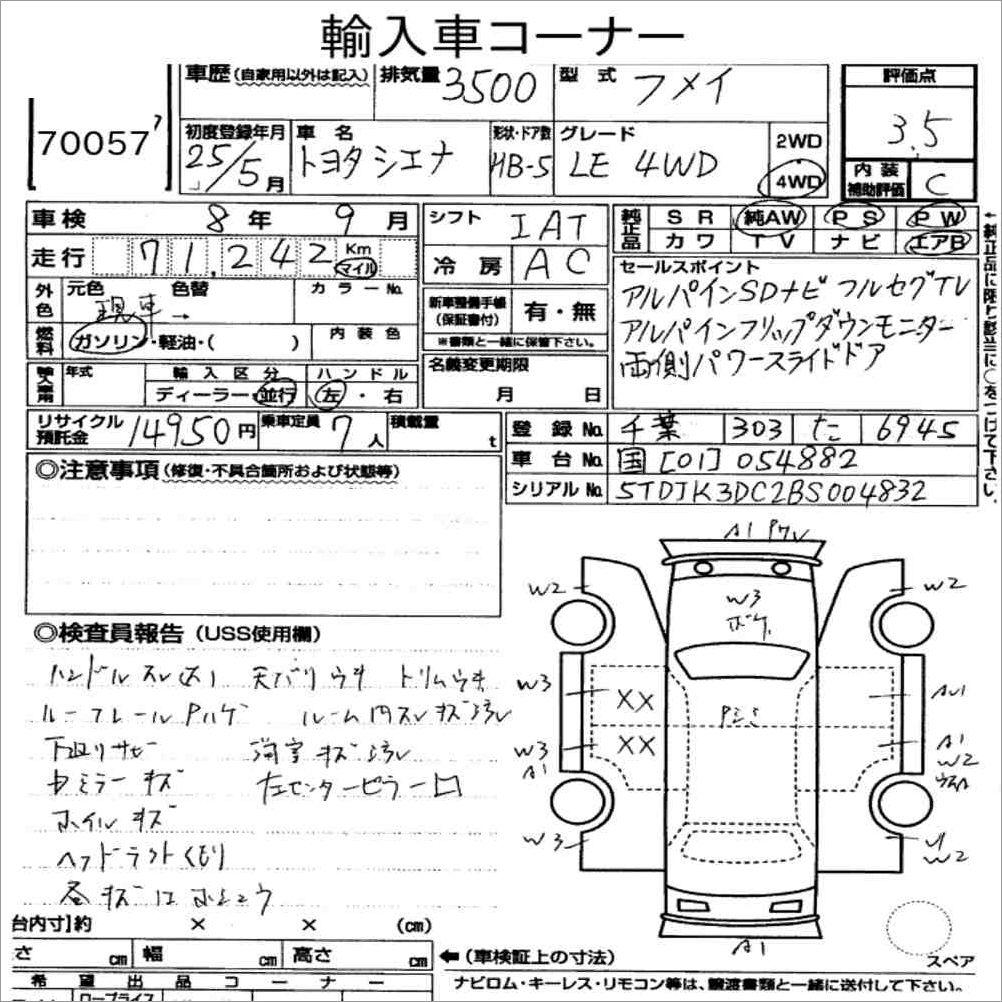 輸入車コーナー
70057
車歴 (自家用以外は記入) 排気量 3500 型式 フメイ 評価点 3.5
初度登録年月 25/5月 車名 トヨタ シエナ 形状・ドア数 HB-5 グレード LE 4WD 2WD 4WD
内装補助評価 C
車検 8年 9月 シフト IAT 純正品 SR 純AW PS PW
走行 71,242 Km マイル 冷房 AC カワ TV ナビ エアB
←純正品に限り該当に○をつけて下さい。
外色 元色 現車→ 色替 カラーNo. 新車整備手帳(保証書付) 有・無
※書類と一緒に保管下さい。
セールスポイント
アルパインSDナビ フルセグTV
アルパインフリップダウンモニター
両側パワースライドドア
燃料 ガソリン・軽油・( ) 内装色
名義変更期限 月 日
輸入車 年式 輸入区分 ディーラー・並行 ハンドル 左・右
リサイクル預託金 14950円 乗車定員 7人 積載量 t
登録No. 千葉 303 た 6945
車台No. 国[01]054882
シリアルNo. 5TDJK3DC2BS004832
◎注意事項 (修復・不具合箇所および状態等)
◎検査員報告 (USS使用欄)
ハンドルスレ(大) 天バリウキ トリムウキ
ルーフレールPハゲ ルーム内スレキズヨゴレ
下廻りサビ
中ミラーキズ 左センターピラー凹
ホイルキズ
ヘッドライトくもり
A1
W2 W2
W3
ボケ
W3 XX
W3 XX A1
A1 W2
W3 W2
A1
スペア
台内寸】約 × × (cm)
さ cm 幅 cm 高さ cm ←(車検証上の寸法)
希望出品コーナー ナビロム・キーレス・リモコン等は、譲渡書類と一緒に送付して下さい。